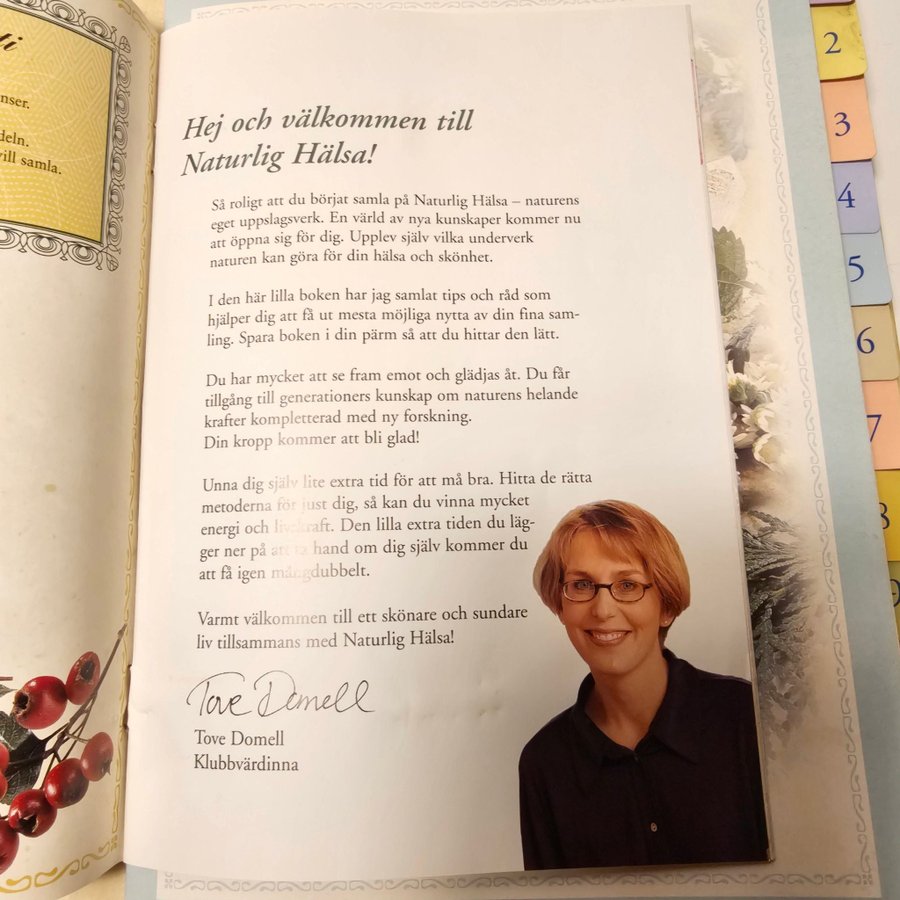 ti
nser.
deln.
vill samla.
Hej och välkommen till
Naturlig Hälsa!
Så roligt att du börjat samla på Naturlig Hälsa – naturens
eget uppslagsverk. En värld av nya kunskaper kommer nu
att öppna sig för dig. Upplev själv vilka underverk
naturen kan göra för din hälsa och skönhet.
I den här lilla boken har jag samlat tips och råd som
hjälper dig att få ut mesta möjliga nytta av din fina sam-
ling. Spara boken i din pärm så att du hittar den lätt.
Du har mycket att se fram emot och glädjas åt. Du får
tillgång till generationers kunskap om naturens helande
krafter kompletterad med ny forskning.
Din kropp kommer att bli glad!
Unna dig själv lite extra tid för att må bra. Hitta de rätta
metoderna för just dig, så kan du vinna mycket
energi och livskraft. Den lilla extra tiden du läg-
ger ner på att ta hand om dig själv kommer du
att få igen mångdubbelt.
Varmt välkommen till ett skönare och sundare
liv tillsammans med Naturlig Hälsa!
Tove Domell
Tove Domell
Klubbvärdinna
2
3
4
5
6
7
8
9